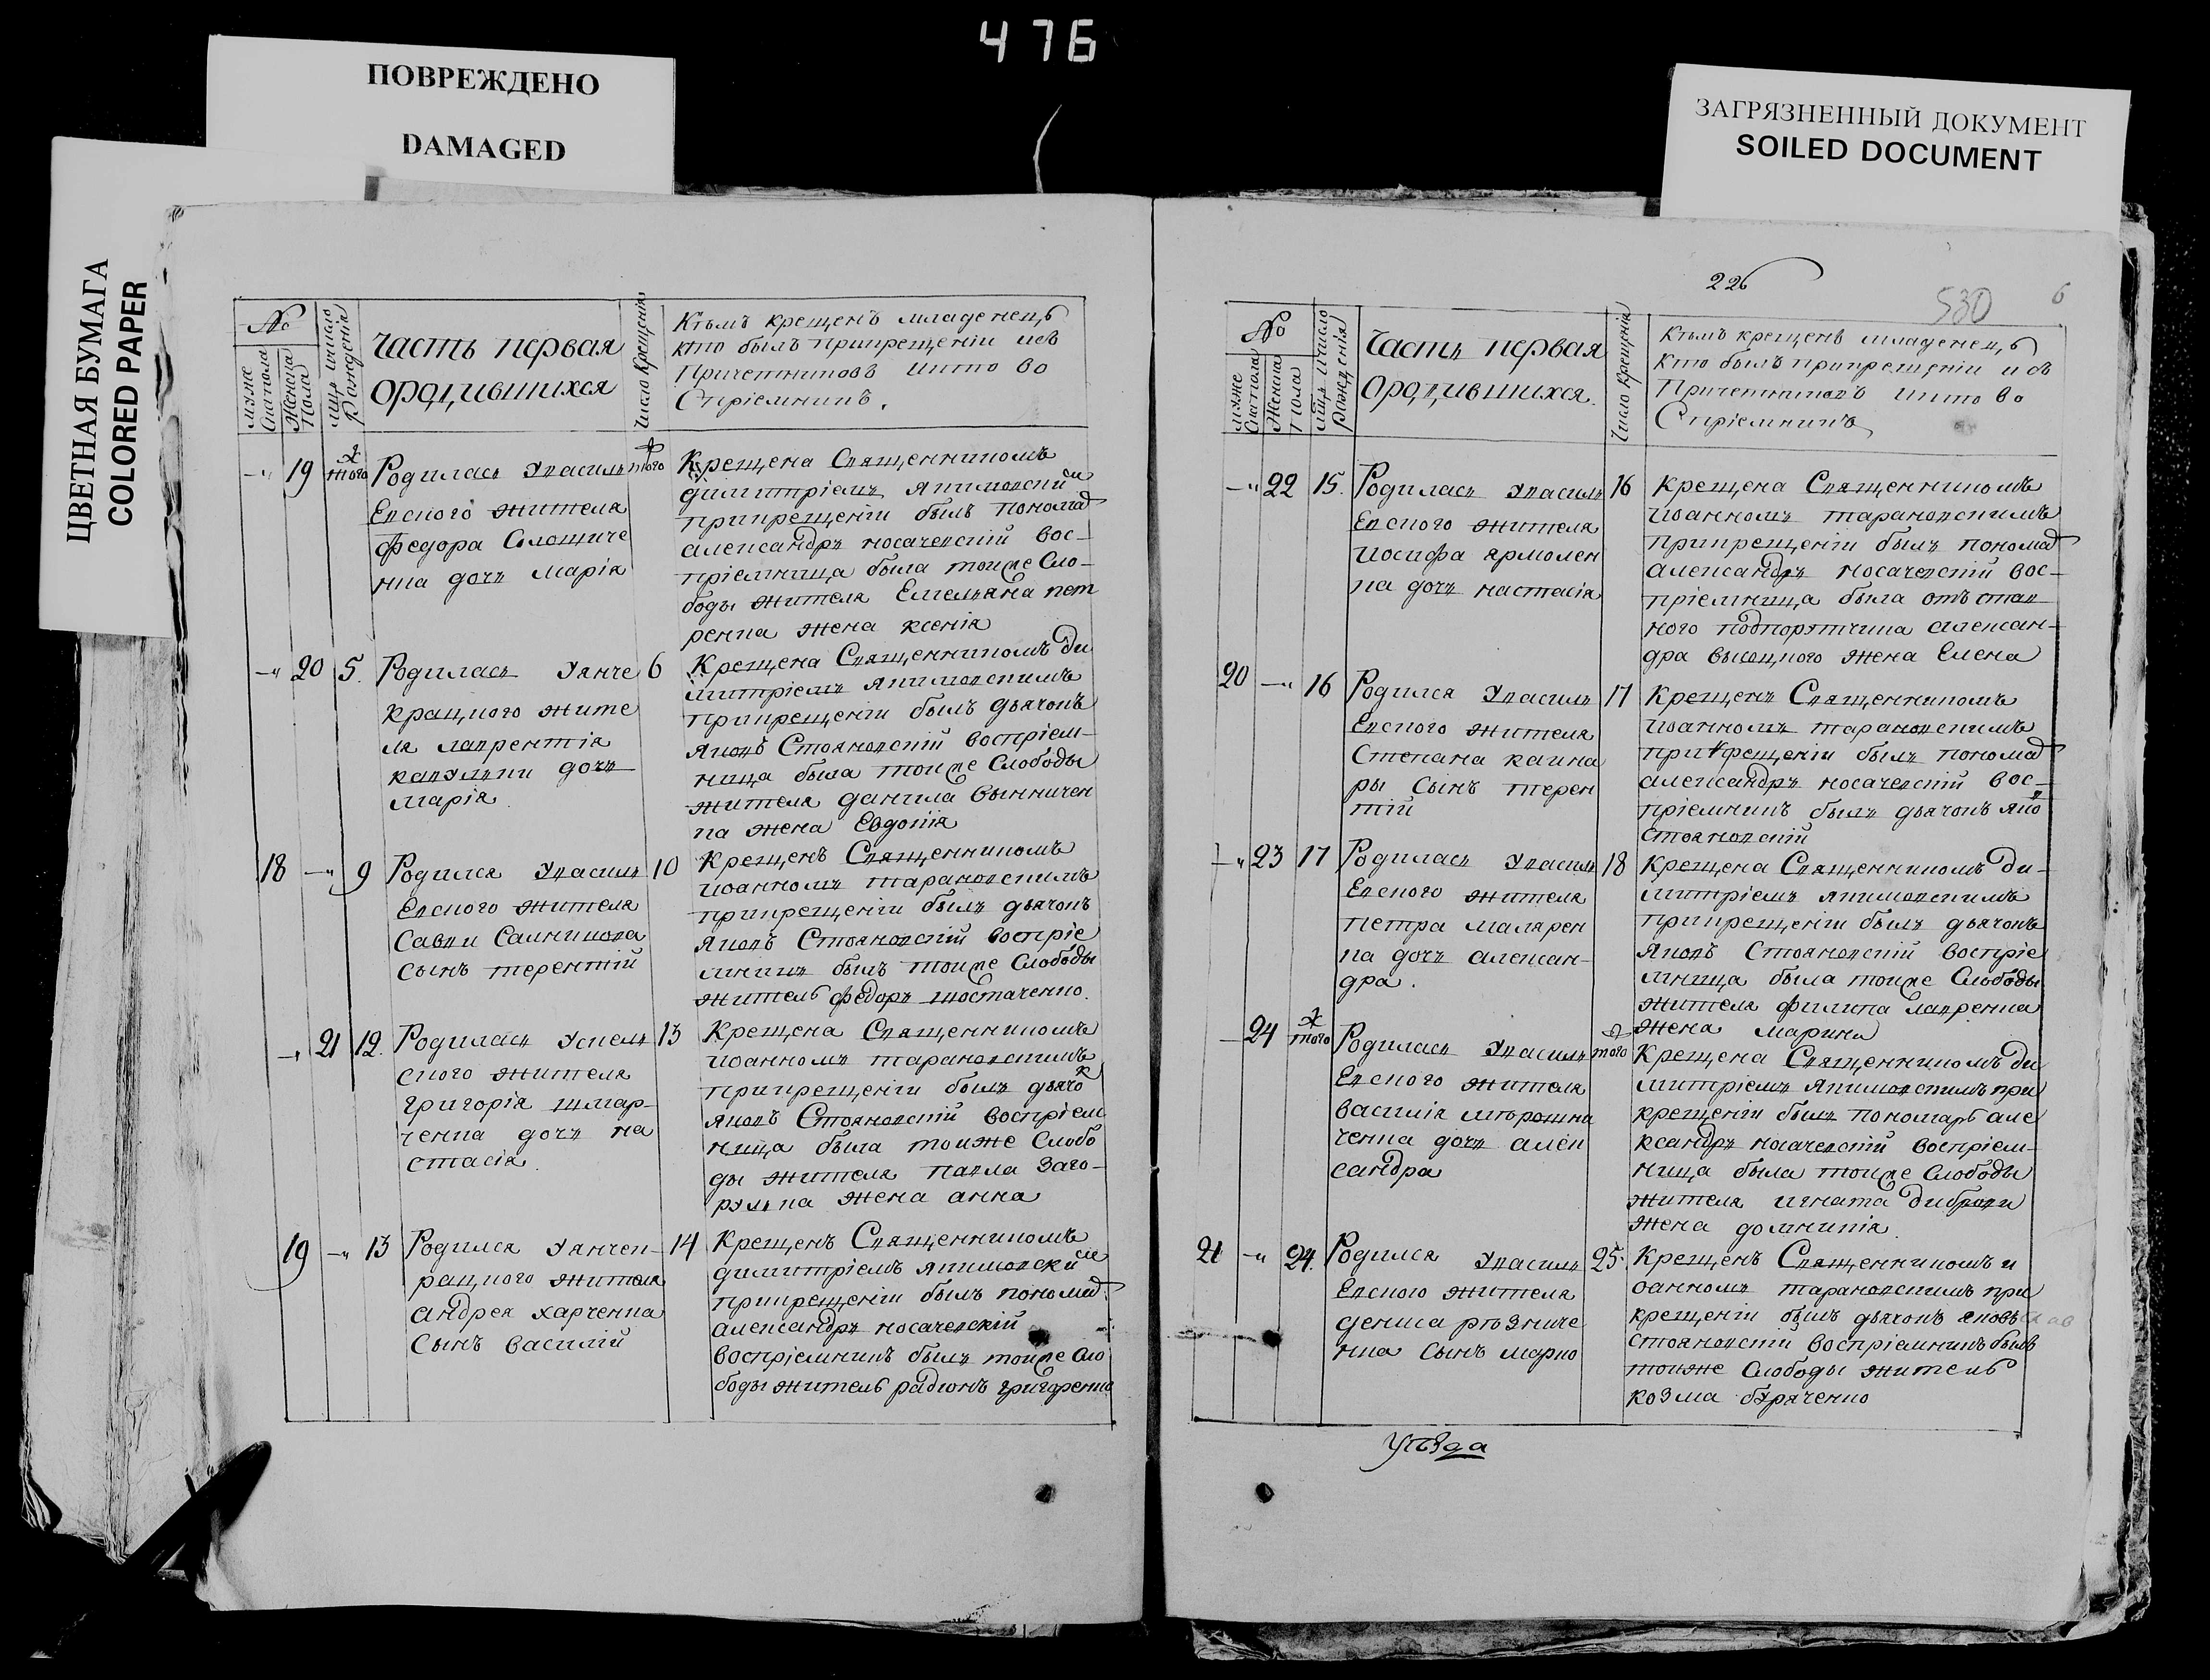 476
ПОВРЕЖДЕНО
DAMAGED
ЦВЕТНАЯ БУМАГА
COLORED PAPER
ЗАГРЯЗНЕННЫЙ ДОКУМЕНТ
SOILED DOCUMENT
№
муже
ска пола
Женска
Пола
число
Рожденія
Часть первая
ородившихся
Число Крещенія
Кѣмъ крещенъ младенецъ
кто былъ прикрещеніи изъ
Причетниковъ икто во
спріемникъ.
19
того
Родилась Увасиль
Евского жителя
федора
нка дочь Марія
того
Крещена Священникомъ
димитріемъ Якимовским
прикрещеніи былъ понома
александръ носачевскій вос-
пріемница была тоиже Сло-
боды жителя Емельяна пет
ренка жена ксенія
20 5.
Родилась Уянче
кракного жите
ля лаврентія
дочь
Марія
6
Крещена Священникомъ ди
митріемъ Якимовскимъ
прикрещеніи былъ дьячокъ
Яковъ Стояновскій воспріем-
ница была тоиже Слободы
жителя данила винничен
ка жена Евдокія
18 9
Родился Увасиль
Евского жителя
Савки Салникова
сынъ терентій
10
Крещенъ Священникомъ
иоанномъ тарановскимъ
прикрещеніи былъ дьячокъ
Яковъ Стояновскій воспріе
мникъ былъ тоиже Слободы
житель федоръ шостаченко.
21 12.
Родилась
ского жителя
григорія шмар-
ченка дочь на
стасія.
13
Крещена Священникомъ
иоанномъ тарановскимъ
прикрещеніи былъ дьячок
Яковъ Стояновскій воспріем
ница была тоиже Слобо
ды жителя павла Заго-
рулька жена анна
19 13
Родился Уянчек-
ракного жителя
андрея харченка
сынъ василій
14
Крещенъ Священникомъ
димитріемъ Якимовским
прикрещеніи былъ понома
александръ носачевскій
воспріемникъ былъ тоиже Сло
боды житель радіонъ григоренко
226
530
6
№
муже
ска пола
Женска
Пола
число
рожденія
Часть первая
ородившихся.
Число Крещенія
Кѣмъ крещенъ младенецъ
Кто былъ прикрещеніи изъ
Причетниковъ икто во
спріемникъ
22 15.
Родилась Увасиль
Евского жителя
иосифа ярмолен
ка дочь настасія
16
Крещена Священникомъ
иоанномъ тарановскимъ
прикрещеніи былъ понома
александръ носачевскій вос-
пріемница была отъ став
ного подпорутчика алексан-
дра высоцкого жена Елена
20 16
Родился Увасиль
Евского жителя
Степана качна
ры сынъ терен
тій
17
Крещенъ Священникомъ
иоанномъ тарановскимъ
прикрещеніи былъ понома
александръ носачевскій вос-
пріемникъ былъ дьячокъ яков
стояновскій
23 17
Родилась Увасиль
Евского жителя
петра малярен
ка дочь алексан-
дра.
18
Крещена Священникомъ ди-
митріемъ Якимовскимъ
прикрещеніи былъ дьячокъ
Яковъ Стояновскій воспріе
мница была тоиже Слободы
жителя филипа лавренка
жена Марина
24
того
Родилась Увасиль
Евского жителя
василія мѣрошни
ченка дочь алек
сандра
того
Крещена Священникомъ ди
митріемъ Якимовскимъ при
крещеніи былъ пономарь але
ксандръ носачевскій воспріем-
ница была тоиже Слободы
жителя игната дибровы
жена домникія
21 24.
Родился Увасиль
Евского жителя
дениса рѣзниче
нка сынъ марко
25.
Крещенъ Священникомъ и
оанномъ тарановскимъ при
крещеніи былъ дьячокъ яковъ
Стояновскій воспріемникъ былъ
тоиже Слободы житель
козма буряченко
уѣзда